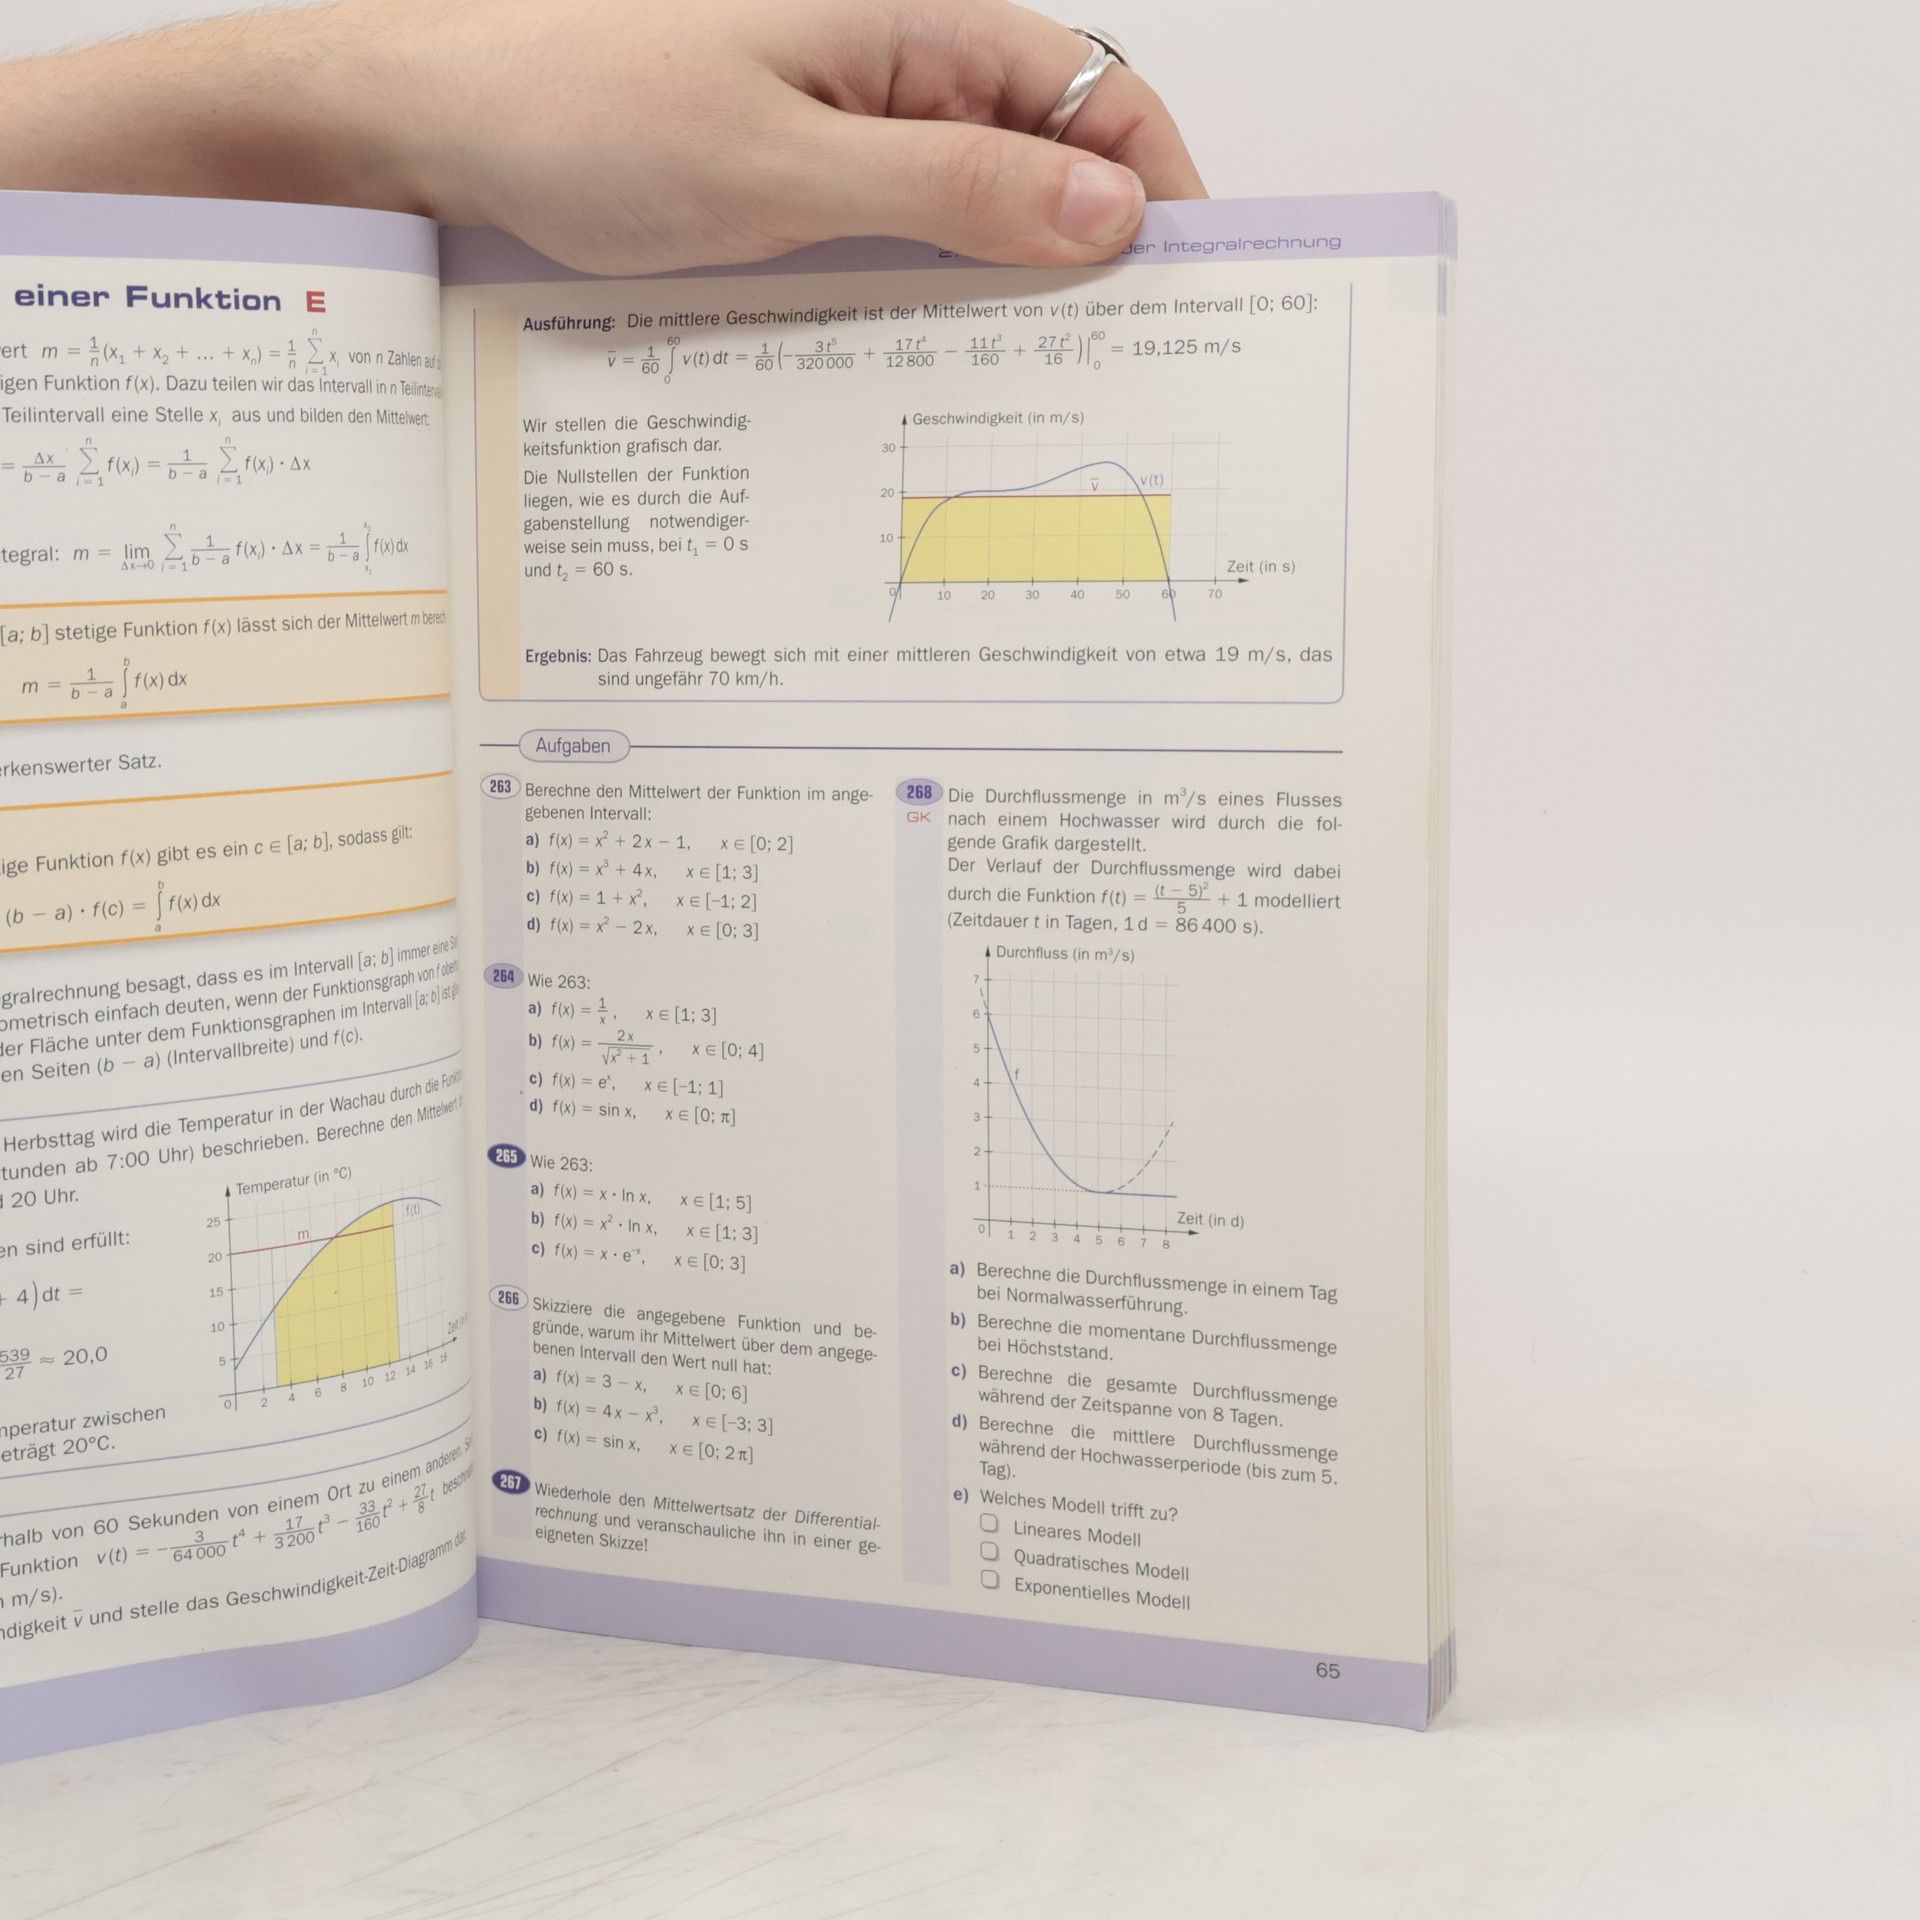 einer Funktion E
ert m = 1/n (x₁ + x₂ + ... + xₙ) = 1/n Σ xᵢ von n Zahlen auf
igen Funktion f(x). Dazu teilen wir das Intervall in n
Teilintervall eine Stelle xᵢ aus und bilden den Mittelwert:
= Δx/(b − a) Σ f(xᵢ) = 1/(b − a) Σ f(xᵢ) · Δx
tegral: m = lim Δx→0 Σ 1/(b − a) f(xᵢ) · Δx = 1/(b − a) ∫ f(x) dx
[a; b] stetige Funktion f(x) lässt sich der Mittelwert m
m = 1/(b − a) ∫ₐᵇ f(x) dx
erkenswerter Satz.
ige Funktion f(x) gibt es ein c ∈ [a; b], sodass gilt:
(b − a) · f(c) = ∫ₐᵇ f(x) dx
gralrechnung besagt, dass es im Intervall [a; b] immer eine
ometrisch einfach deuten, wenn der Funktionsgraph von f
der Fläche unter dem Funktionsgraphen im Intervall [a; b] ist
en Seiten (b − a) (Intervallbreite) und f(c).
Herbsttag wird die Temperatur in der Wachau durch die
tunden ab 7:00 Uhr) beschrieben. Berechne den Mittelwert
20 Uhr.
en sind erfüllt:
+ 4) dt =
539/27 ≈ 20,0
mperatur zwischen
eträgt 20°C.
Temperatur (in °C)
25
20
15
10
5
m
f(t)
0 2 4 6 8 10 12 14 16 18
rhalb von 60 Sekunden von einem Ort zu einem anderen.
Funktion v(t) = − 3/64 000 t⁴ + 17/3 200 t³ − 33/160 t² + 27/8 t
m/s).
ndigkeit v̄ und stelle das Geschwindigkeit-Zeit-Diagramm dar.
der Integralrechnung
Ausführung: Die mittlere Geschwindigkeit ist der Mittelwert von v(t) über dem Intervall [0; 60]:
v̄ = 1/60 ∫₀⁶⁰ v(t) dt = 1/60 (− 3t⁵/320 000 + 17t⁴/12 800 − 11t³/160 + 27t²/16)|₀⁶⁰ = 19,125 m/s
Wir stellen die Geschwindig-
keitsfunktion grafisch dar.
Die Nullstellen der Funktion
liegen, wie es durch die Auf-
gabenstellung notwendiger-
weise sein muss, bei t₁ = 0 s
und t₂ = 60 s.
Geschwindigkeit (in m/s)
30
20
10
v̄
v(t)
Zeit (in s)
0 10 20 30 40 50 60 70
Ergebnis: Das Fahrzeug bewegt sich mit einer mittleren Geschwindigkeit von etwa 19 m/s, das
sind ungefähr 70 km/h.
Aufgaben
263 Berechne den Mittelwert der Funktion im ange-
gebenen Intervall:
a) f(x) = x² + 2x − 1, x ∈ [0; 2]
b) f(x) = x³ + 4x, x ∈ [1; 3]
c) f(x) = 1 + x², x ∈ [−1; 2]
d) f(x) = x² − 2x, x ∈ [0; 3]
264 Wie 263:
a) f(x) = 1/x, x ∈ [1; 3]
b) f(x) = 2x/√(x² + 1), x ∈ [0; 4]
c) f(x) = eˣ, x ∈ [−1; 1]
d) f(x) = sin x, x ∈ [0; π]
265 Wie 263:
a) f(x) = x · ln x, x ∈ [1; 5]
b) f(x) = x² · ln x, x ∈ [1; 3]
c) f(x) = x · e⁻ˣ, x ∈ [0; 3]
266 Skizziere die angegebene Funktion und be-
gründe, warum ihr Mittelwert über dem angege-
benen Intervall den Wert null hat:
a) f(x) = 3 − x, x ∈ [0; 6]
b) f(x) = 4x − x³, x ∈ [−3; 3]
c) f(x) = sin x, x ∈ [0; 2π]
267 Wiederhole den Mittelwertsatz der Differential-
rechnung und veranschauliche ihn in einer ge-
eigneten Skizze!
268 Die Durchflussmenge in m³/s eines Flusses
GK nach einem Hochwasser wird durch die fol-
gende Grafik dargestellt.
Der Verlauf der Durchflussmenge wird dabei
durch die Funktion f(t) = (t − 5)²/5 + 1 modelliert
(Zeitdauer t in Tagen, 1 d = 86 400 s).
Durchfluss (in m³/s)
7
6
5
4
3
2
1
f
Zeit (in d)
0 1 2 3 4 5 6 7 8
a) Berechne die Durchflussmenge in einem Tag
bei Normalwasserführung.
b) Berechne die momentane Durchflussmenge
bei Höchststand.
c) Berechne die gesamte Durchflussmenge
während der Zeitspanne von 8 Tagen.
d) Berechne die mittlere Durchflussmenge
während der Hochwasserperiode (bis zum 5.
Tag).
e) Welches Modell trifft zu?
Lineares Modell
Quadratisches Modell
Exponentielles Modell
65